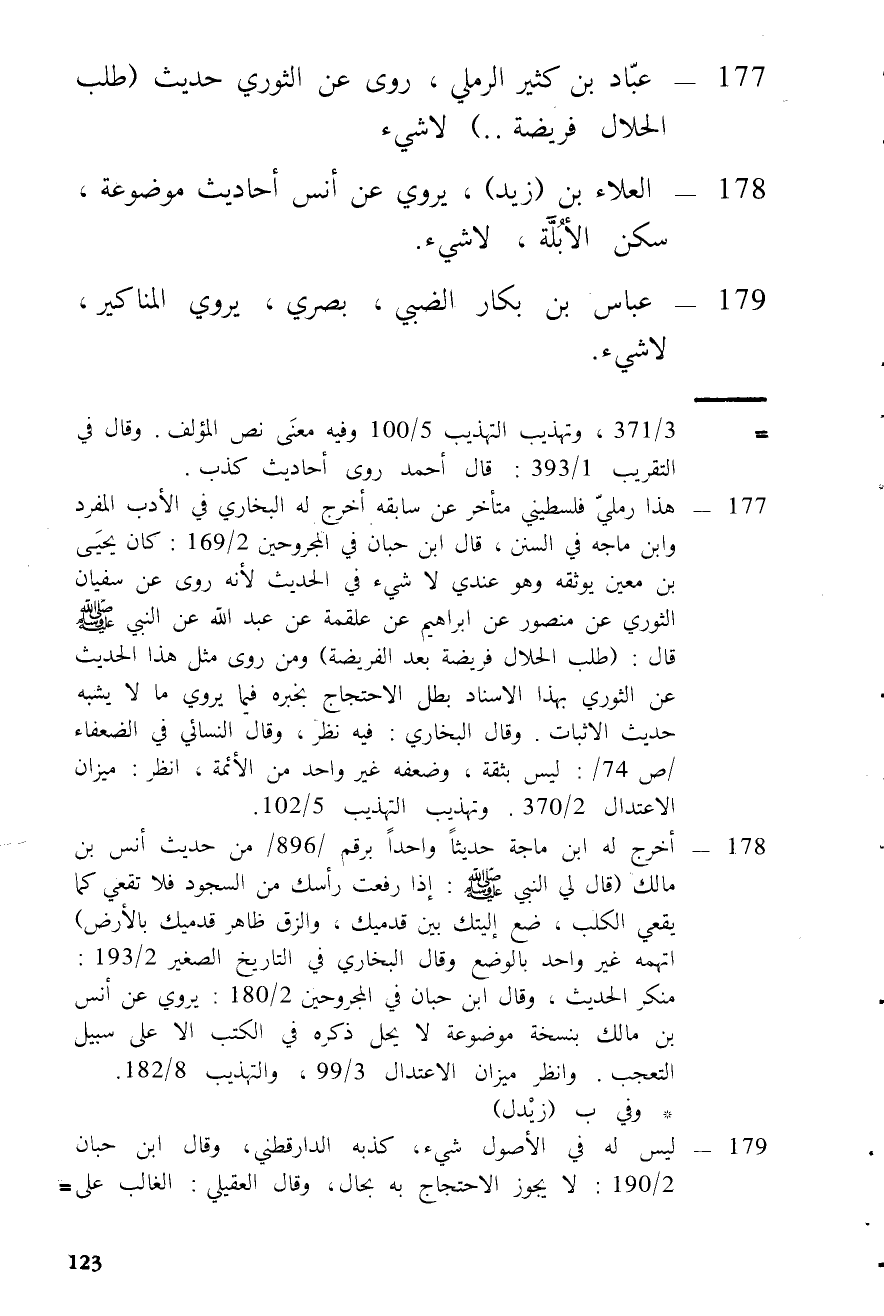 177 — عبّاد بن كثير الرملي ، روى عن الثوري حديث (طلب
الحلال فريضة ..) لاشيء
178 — العلاء بن (زيد) ، يروي عن أنس أحاديث موضوعة ،
سكن الأُبُلَّة ، لاشيء.
179 — عباس بن بكار الضبي ، بصري ، يروي المناكير ،
لاشيء.
= 371/3 ، وتهذيب التهذيب 100/5 وفيه معنَى نص المؤلف . وقال في
التقريب 393/1 : قال أحمد روى أحاديث كذب .
177 — هذا رمليّ فلسطيني متأخر عن سابقه أخرج له البخاري في الأدب المفرد
وابن ماجه في السنن ، قال ابن حبان في المجروحين 169/2 : كان يحيَى
بن معين يوثقه وهو عندي لا شيء في الحديث لأنه روى عن سفيان
الثوري عن منصور عن ابراهيم عن علقمة عن عبد الله عن النبي ﷺ
قال : (طلب الحلال فريضة بعد الفريضة) ومن روى مثل هذا الحديث
عن الثوري بهذا الاسناد بطل الاحتجاج بخبره فيما يروي ما لا يشبه
حديث الاثبات . وقال البخاري : فيه نظر ، وقال النسائي في الضعفاء
/ص 74/ : ليس بثقة ، وضعفه غير واحد من الأئمة ، انظر : ميزان
الاعتدال 370/2 . وتهذيب التهذيب 102/5.
178 — أخرج له ابن ماجة حديثاً واحداً برقم /896/ من حديث أنس بن
مالك (قال لي النبي ﷺ : إذا رفعت رأسك من السجود فلا تقعي كما
يقعي الكلب ، ضع إليتك بين قدميك ، والزق ظاهر قدميك بالأرض)
اتهمه غير واحد بالوضع وقال البخاري في التاريخ الصغير 193/2 :
منكر الحديث ، وقال ابن حبان في المجروحين 180/2 : يروي عن أنس
بن مالك بنسخة موضوعة لا يحل ذكره في الكتب الا على سبيل
التعجب . وانظر ميزان الاعتدال 99/3 ، والتهذيب 182/8.
* وفي ب (زيْدل)
179 — ليس له في الأصول شيء، كذبه الدارقطني، وقال ابن حبان
190/2 : لا يجوز الاحتجاج به بحال، وقال العقيلي : الغالب على=
123